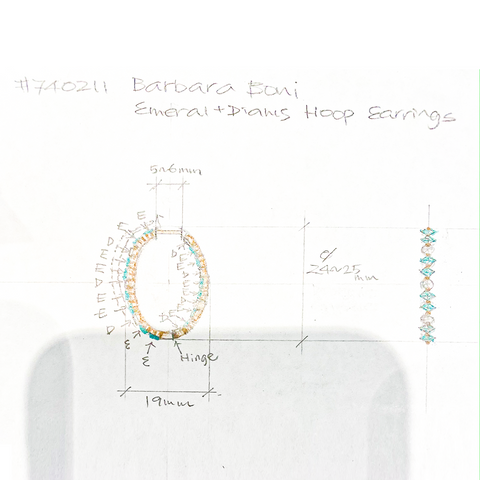 #740211 Barbara Boni
Emeral+Diams Hoop Earrings
5~6mm
E
D
E
c/
24~25
mm
D
E
E
D
E
E
D
E
E
Hinge
19mm